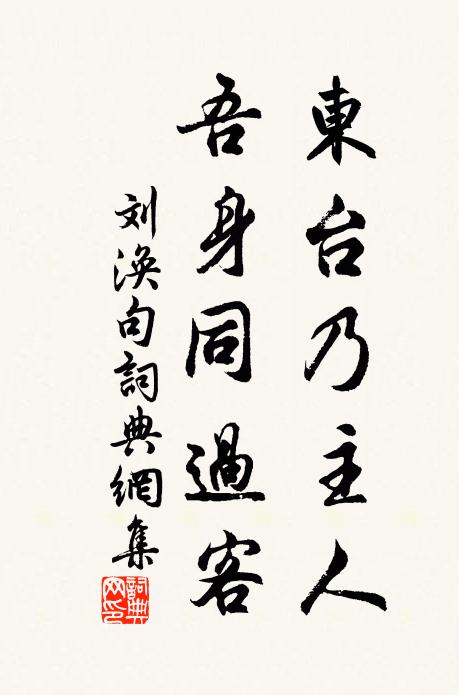 東台乃主人
吾身同過客
刘渙句詞典網集
詞典网印